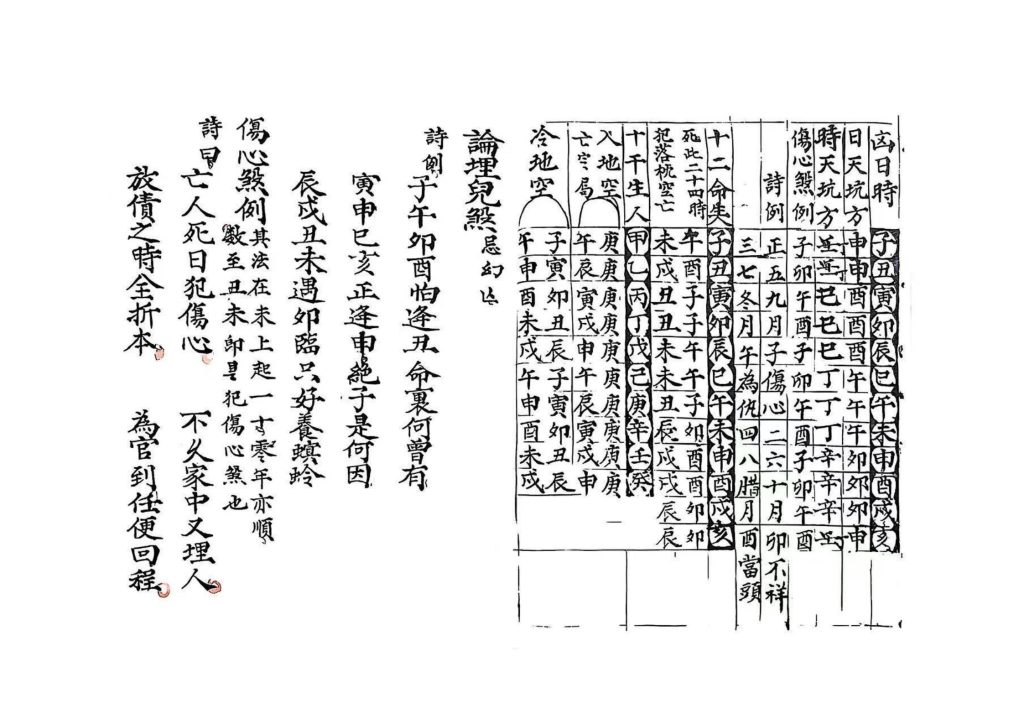 凶日時 子丑寅卯辰巳午未申酉戌亥
日天坑方 申申酉酉酉午午午卯卯卯申
時天坑方 巳巳巳丁丁丁辛辛辛
傷心煞例 子卯午酉子卯午酉子卯午酉
詩例 正五九月子傷心二六十月卯不祥
三七冬月午為仇四八腊月酉當頭
十二命失 子丑寅卯辰巳午未申酉戌亥
死此二十四時 午酉子子午午子卯酉酉卯卯
犯落桄空亡 未戌丑丑未未丑辰戌戌辰辰
十干生人 甲乙丙丁戊己庚辛壬癸
入地空 庚庚庚庚庚庚庚庚庚庚
亡 局 午辰寅戌申午辰寅戌申
冷地空 子寅卯丑辰子寅卯丑辰
午申酉未戌午申酉未戌
論埋兒煞 忌幻
詩例 子午卯酉怕逢丑命裏何曾有
寅申巳亥正逢申絕子是何因
辰戌丑未遇卯臨只好養螟蛉
傷心煞例 其法在未上起一十零年亦順
數至丑未即是犯傷心煞也
詩曰 亡人死日犯傷心 不久家中又埋人
放債之時全折本 為官到任便回程